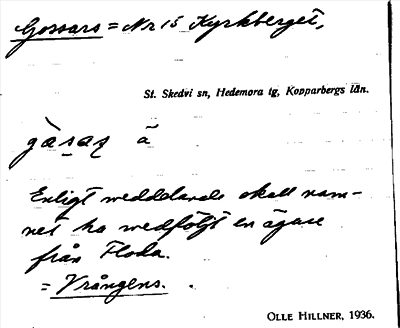 Gossars = Nr 15 Kyrkberget,
St. Skedvi sn, Hedemora tg, Kopparbergs län.
gàsaz ä
Enligt meddelande skall nam-
net ha medföljt en ägare
från Floda.
= Vrångens.
OLLE HILLNER, 1936.